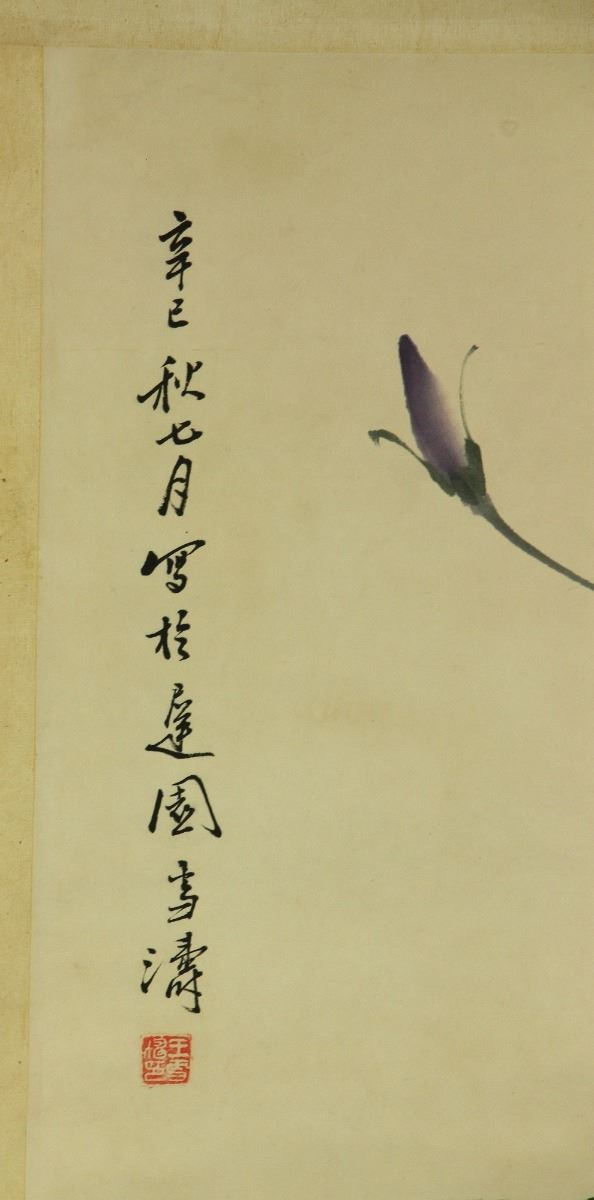 辛巳秋七月寫於遲園雪濤